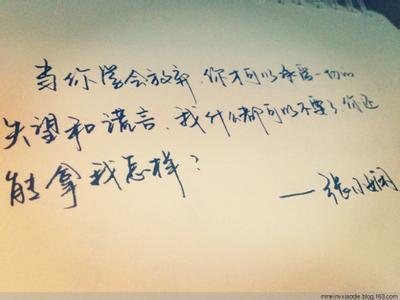 当你学会放弃,你才可以承受一切的
失望和谎言、我什么都可以不要了你还
能拿我怎样?
——张小娴
mineinvxiaodie.blog.163.com